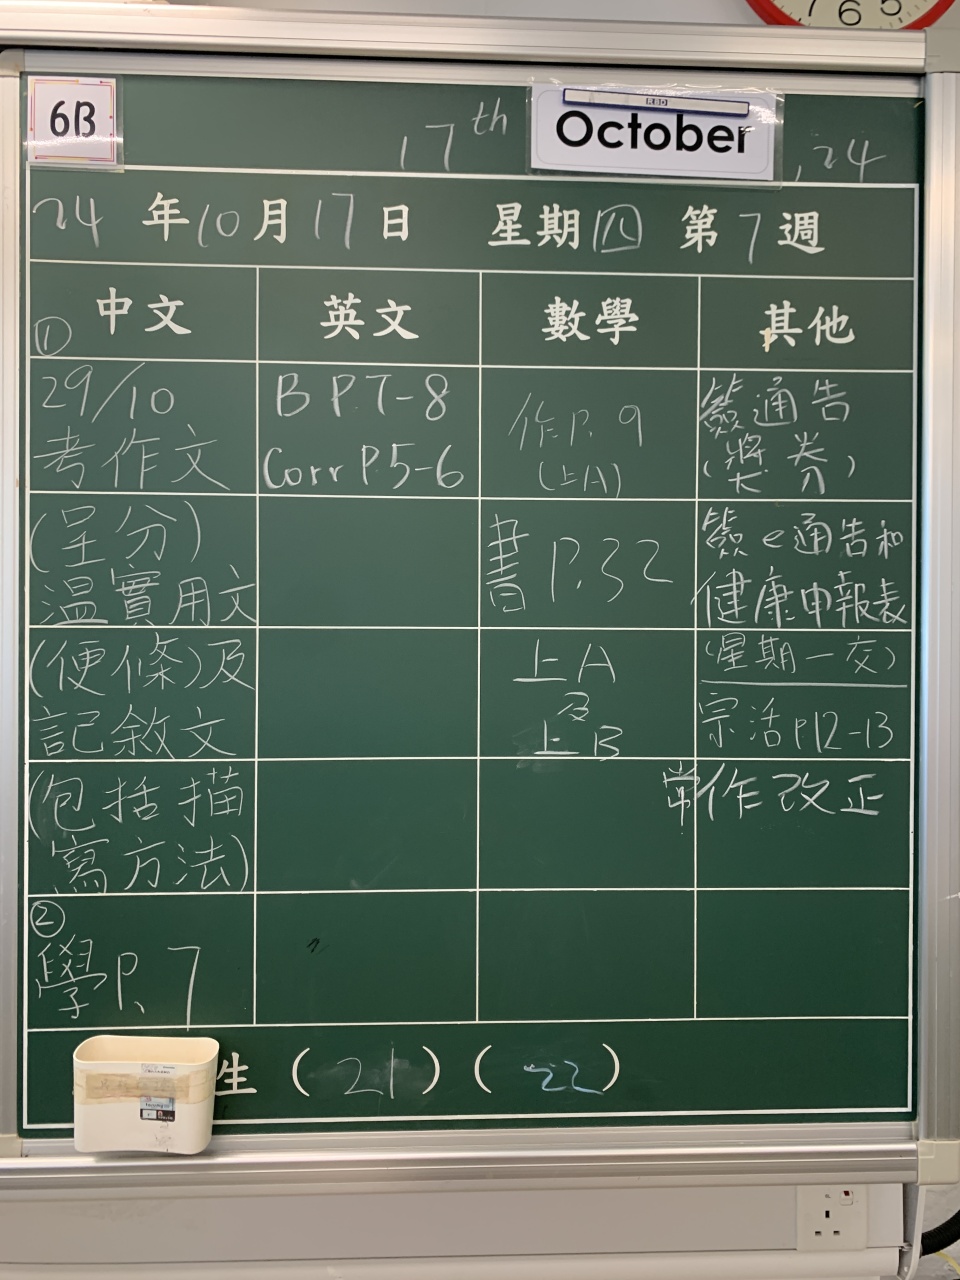 7 6 5
6B
17th October, 24
RBD
24 年 10 月 17 日 星期 四 第 7 週
中文
英文
數學
其他
①
29/10
考作文
(呈分)
温實用文
(便條)及
記敘文
(包括描
寫方法)
②
學P.7
B P.7-8
Corr P.5-6
作P.9
(上A)
書P.32
上A
及
上B
簽通告
(獎券)
簽e通告和
健康申報表
(星期一交)
宗活p12-13
常作改正
生 (21) (22)